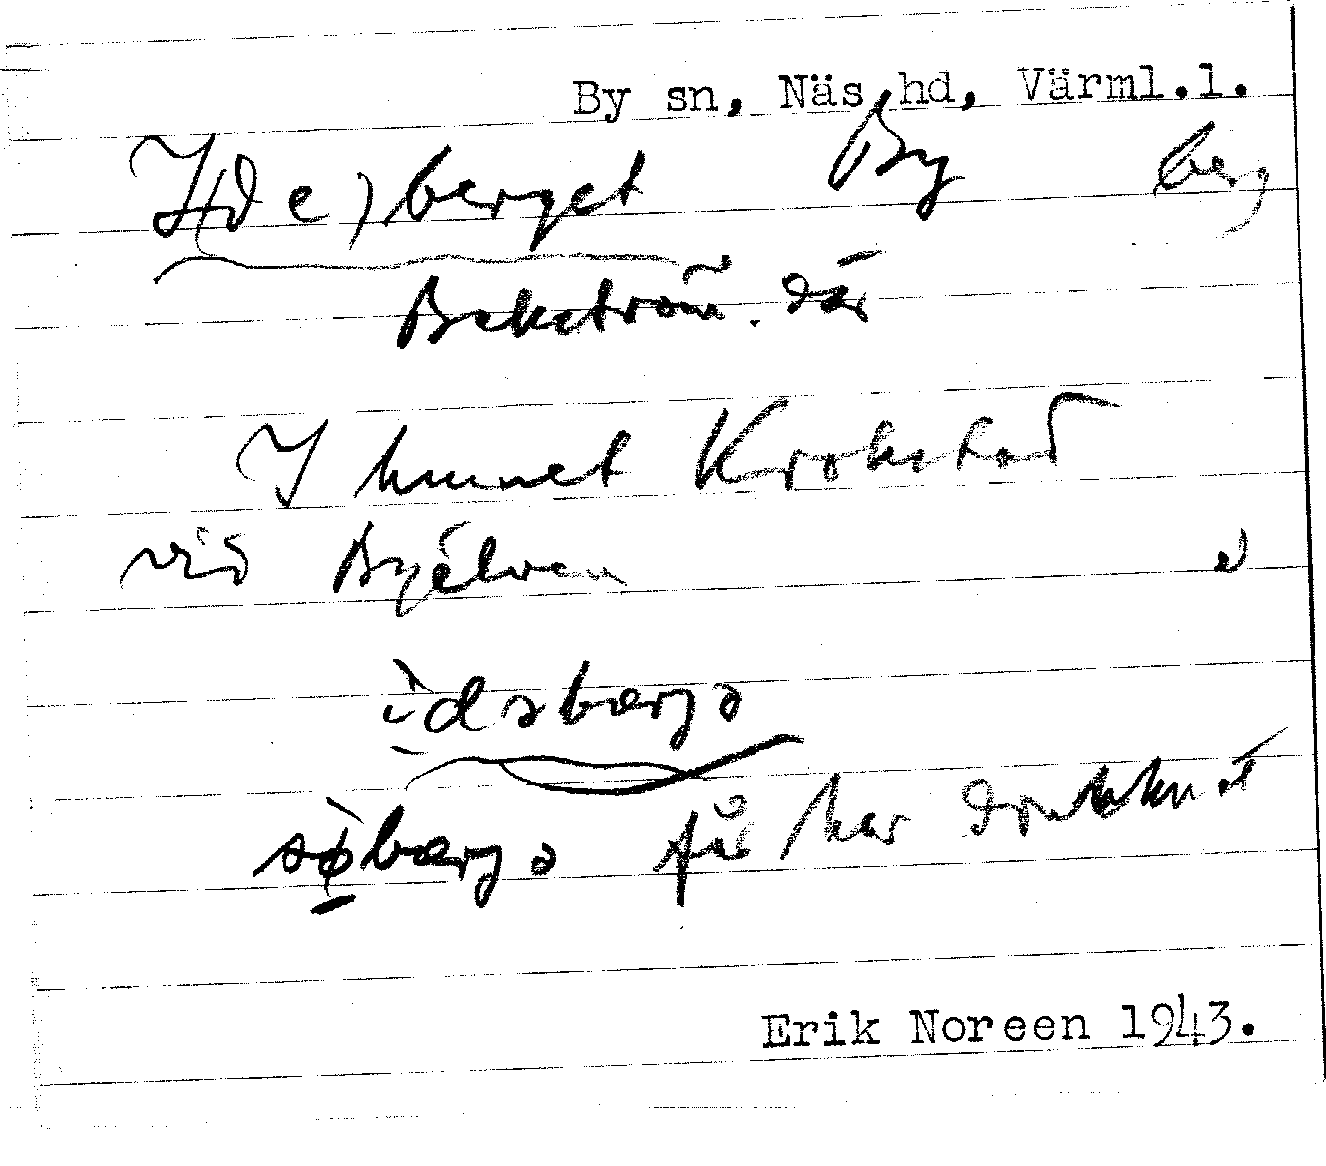 By sn, Näs hd, Värml.l.
I(de)berget By berg
Bekström. där
I hemmet Krokstad
vid Byälven
ìdəbærjə
sø̀bærjə får har druknat
Erik Noreen 1943.